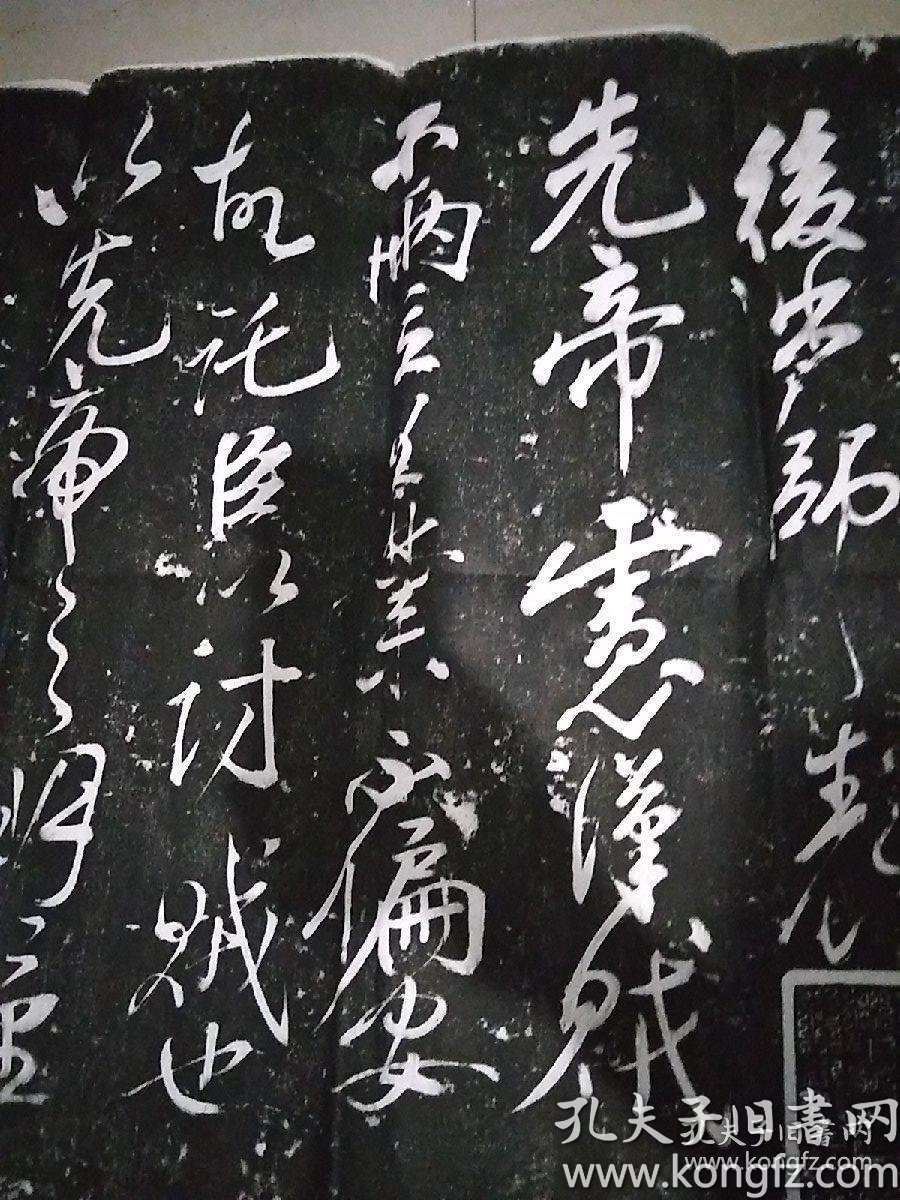 後出師表
先帝慮漢賊
不兩立王業不偏安
故託臣以討賊也
以先帝之明量
孔夫子旧書网
www.kongfz.com
孔夫子旧書网
www.kongfz.com